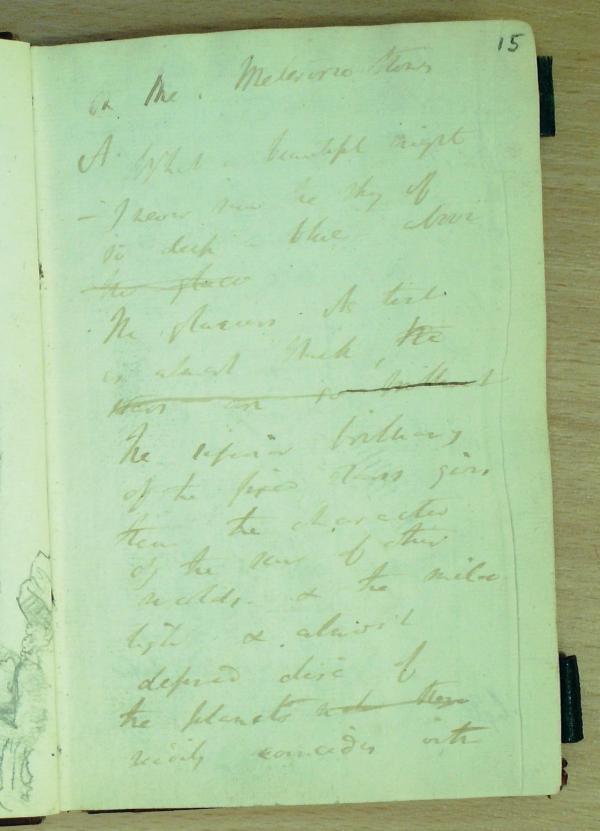 15
On the Meteoric Stones
A What a beautiful night
- I never saw the sky of
so deep a blue above
the glace
the glaciers its tint
is almost black, the
stars are so brilliant
The superior brilliancy
of the fixed stars gives
them the character
of the suns of other
worlds. & the milder
light & almost
defined disc of
the planets
vividly coincides with